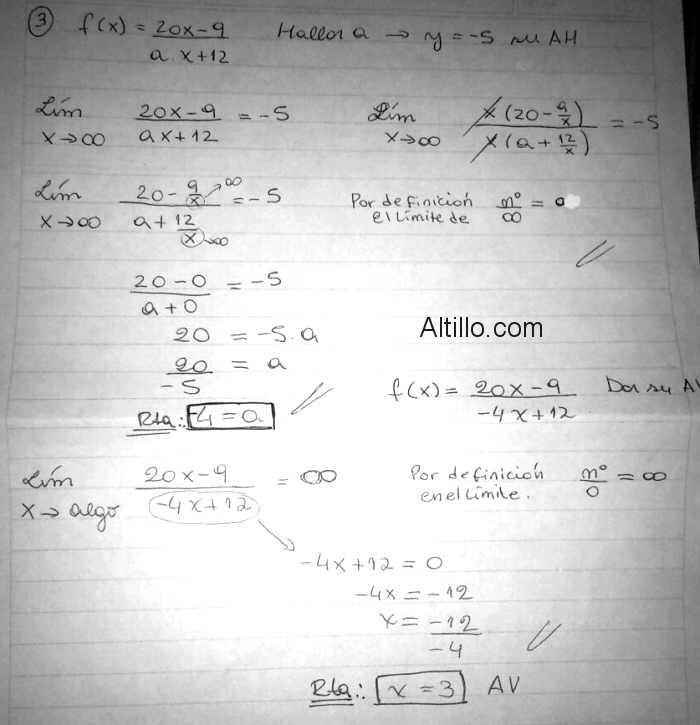 ③ f(x) = 20x-9 / a.x+12 Hallar a → y = -5 su AH
Lím x→∞ 20x-9 / ax+12 = -5
Lím x→∞ x(20 - 9/x) / x(a + 12/x) = -5
Lím x→∞ 20 - 9/x →∞ / a + 12/x →∞ = -5
Por definición el Límite de nº/∞ = 0
20-0 / a+0 = -5
20 = -5.a
20 / -5 = a
Rta.: -4 = a
Altillo.com
f(x) = 20x-9 / -4x+12 Dar su AV
Lím x→algo 20x-9 / -4x+12 = ∞
Por definición en el Límite. nº/0 = ∞
-4x+12 = 0
-4x = -12
x = -12 / -4
Rta.: x = 3 AV